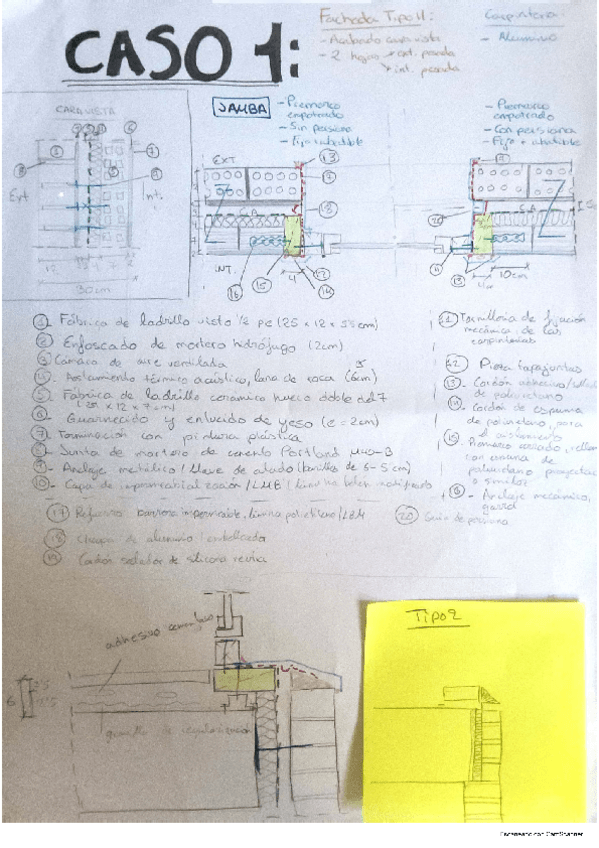 CASO 1:
Fachada Tipo 1:
- Acabado cara vista
- 2 hojas ext. pesada
int. pesada
Carpintería:
- Aluminio
CARAVISTA
Ext.
Int.
30cm
JAMBA
- Premarco
empotrado
- Sin persiana
- Fijo + abatible
- Premarco
empotrado
- Con persiana
- Fijo + abatible
EXT
INT.
C.A
4
10cm
1 Fábrica de ladrillo visto 1/2 pie (25 x 12 x 5'5 cm)
2 Enfoscado de mortero hidrófugo (2cm)
3 Cámara de aire ventilada
Aislamiento térmico acústico, lana de roca (6cm)
5 Fábrica de ladrillo cerámico hueco doble del 7
(25 x 12 x 7 cm)
6 Guarnecido y enlucido de yeso (e = 2cm)
7 Terminación con pintura plástica
8 Junta de mortero de cemento Portland
9 Anclaje metálico / Llave de atado (varillas de 5-5cm)
10 Capa de impermeabilización / LMB
Tornillería de fijación
mecánica de las
carpinterías
Pieza tapajuntas
13 Cordón adhesivo
de poliuretano
14 Cordón de espuma
de poliuretano, para
el aislamiento
15 Premarco
con espuma de
poliuretano, proyectado
o similar
16 Anclaje mecánico,
17 Refuerzo barrera impermeable, lámina polietileno / LBM
18 Chapa de aluminio
19 Cordón sellador de silicona
20 Guía de persiana
adhesivo cementoso
6
Tipo 2
Escaneado con CamScanner